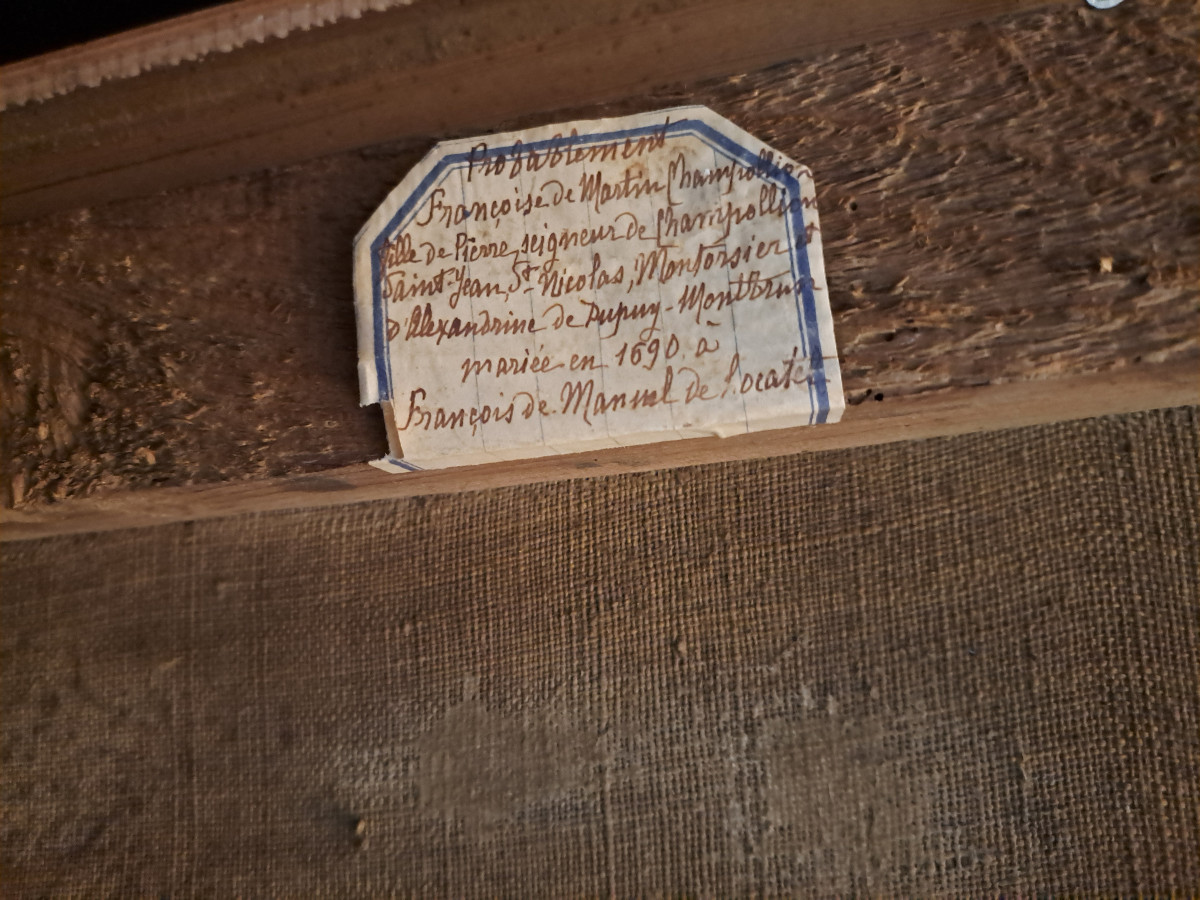 Probablement
Françoise de Martin Champollion
fille de Pierre, seigneur de Champollion
Saint-Jean, St Nicolas, Montorsier et
d'Alexandrine de Dupuy-Montbrun
mariée en 1690 à
François de Manuel de Locatel